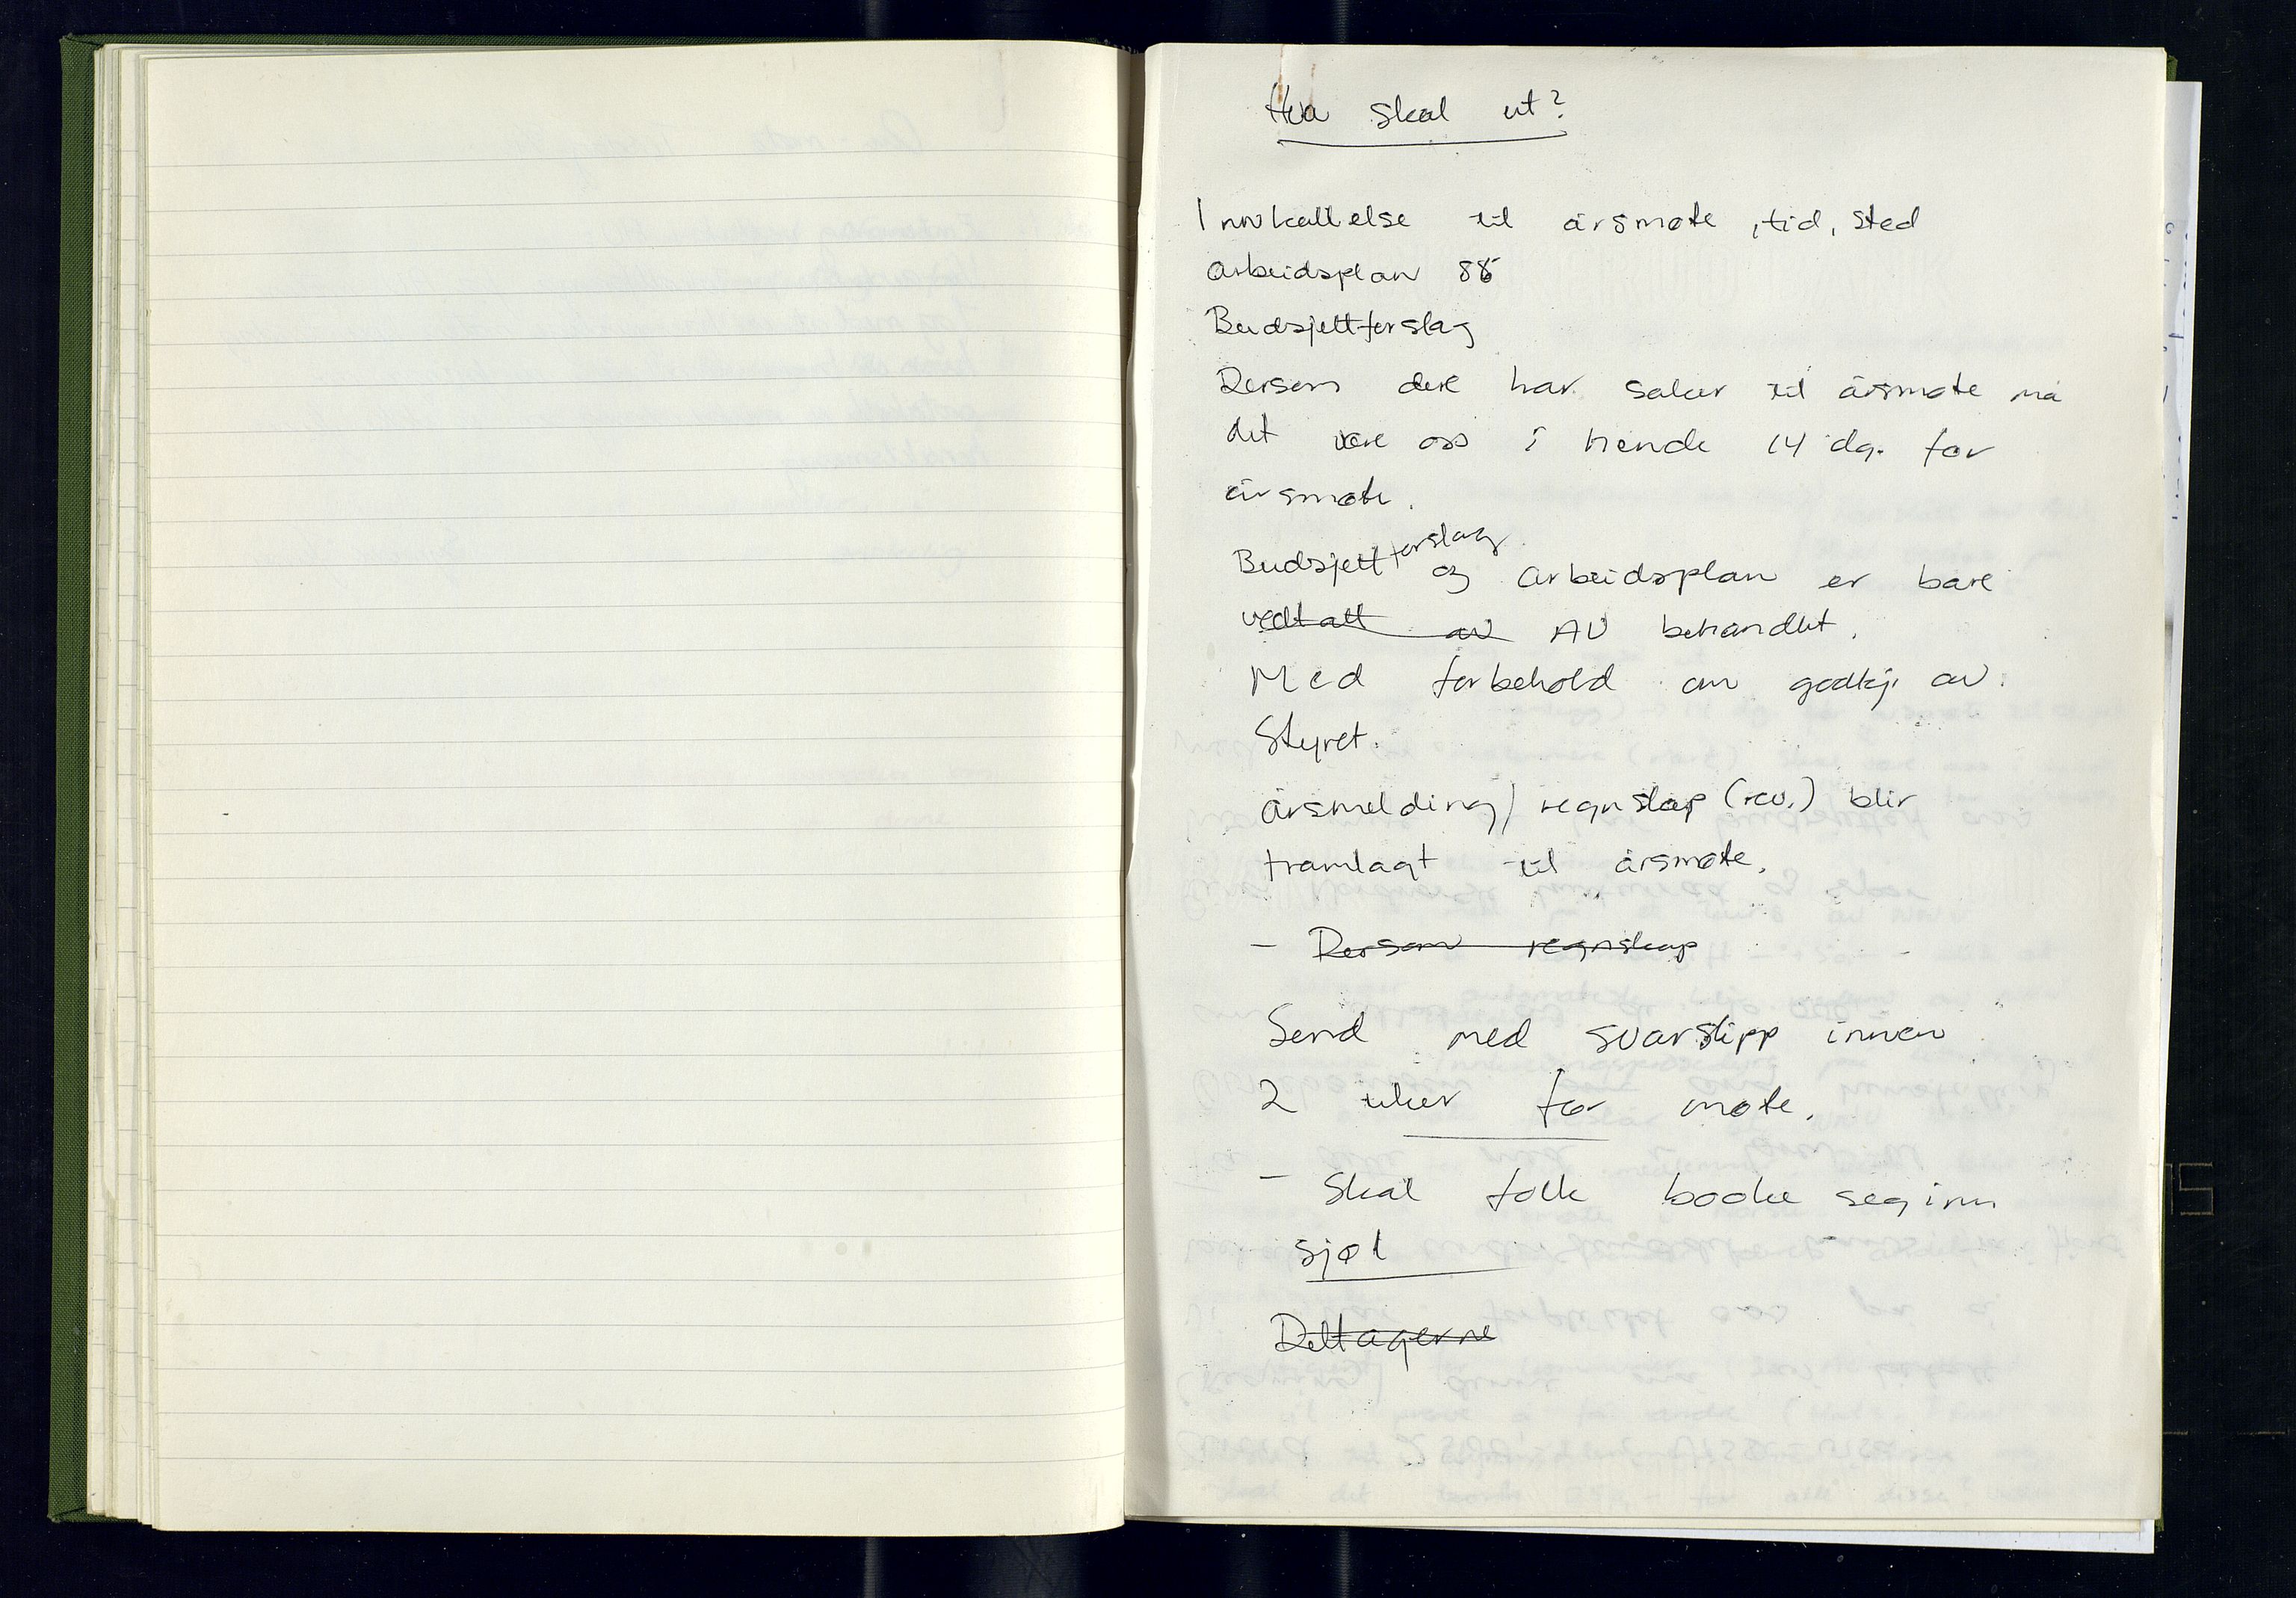 Hva skal ut?
Innkallelse til årsmøte, tid, sted
arbeidsplan 88
Budsjettforslag
Dersom dere har saker til årsmøte må
det være oss i hende 14 dg. før
årsmøte.
Budsjett forslag og arbeidsplan er bare
vedtatt av AU behandlet.
Med forbehold om godkj. av
Styret.
årsmelding/regnskap (rev.) blir
framlagt til årsmøte.
- Dersom regnskap
Send med svarslipp innen
2 uker før møte.
- Skal folk booke seg inn
sjøl
Deltagerne